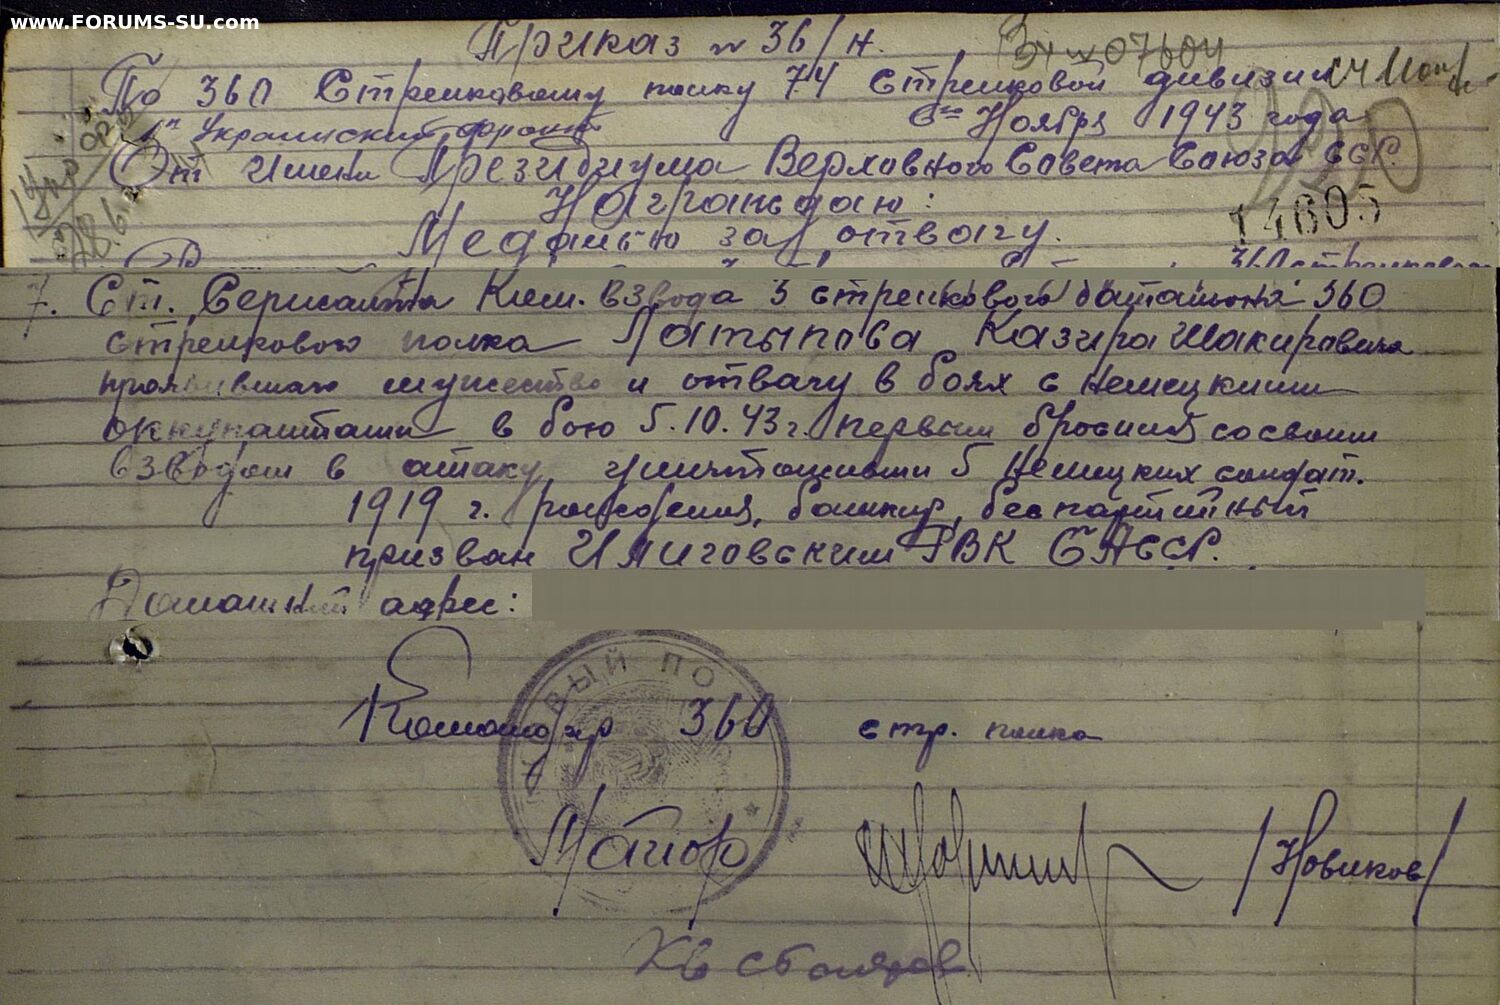 www.FORUMS-SU.com
Приказ № 36/н.
По 360 Стрелковому полку 74 Стрелковой дивизии
1го Украинский фронт 6го Ноября 1943 года
От имени Президиума Верховного Совета Союза ССР.
Награждаю:
14605
Медалью за отвагу.
7. Ст. Сержанта Ком. взвода 3 стрелкового батальона 360
стрелкового полка Латыпова Казира Шакировича
проявившего мужество и отвагу в боях с немецкими
оккупантами в бою 5.10.43 г. первым бросился со своим
взводом в атаку уничтоживши 5 немецких солдат.
1919 г. рождения, башкир, беспартийный
призван Илиговским РВК БАССР.
Домашний адрес:
ВЫЙ ПО
Командир 360 стр. полка
Майор /Новиков/